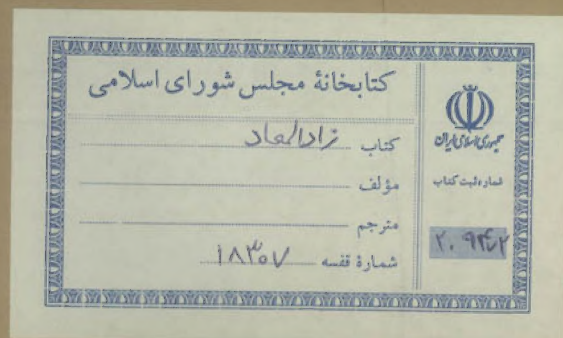 کتابخانهٔ مجلس شورای اسلامی
کتاب زادالمعاد
مؤلف
مترجم
شمارهٔ قفسه ۱۸۳۰۷
جمهوری اسلامی ایران
شماره ثبت کتاب